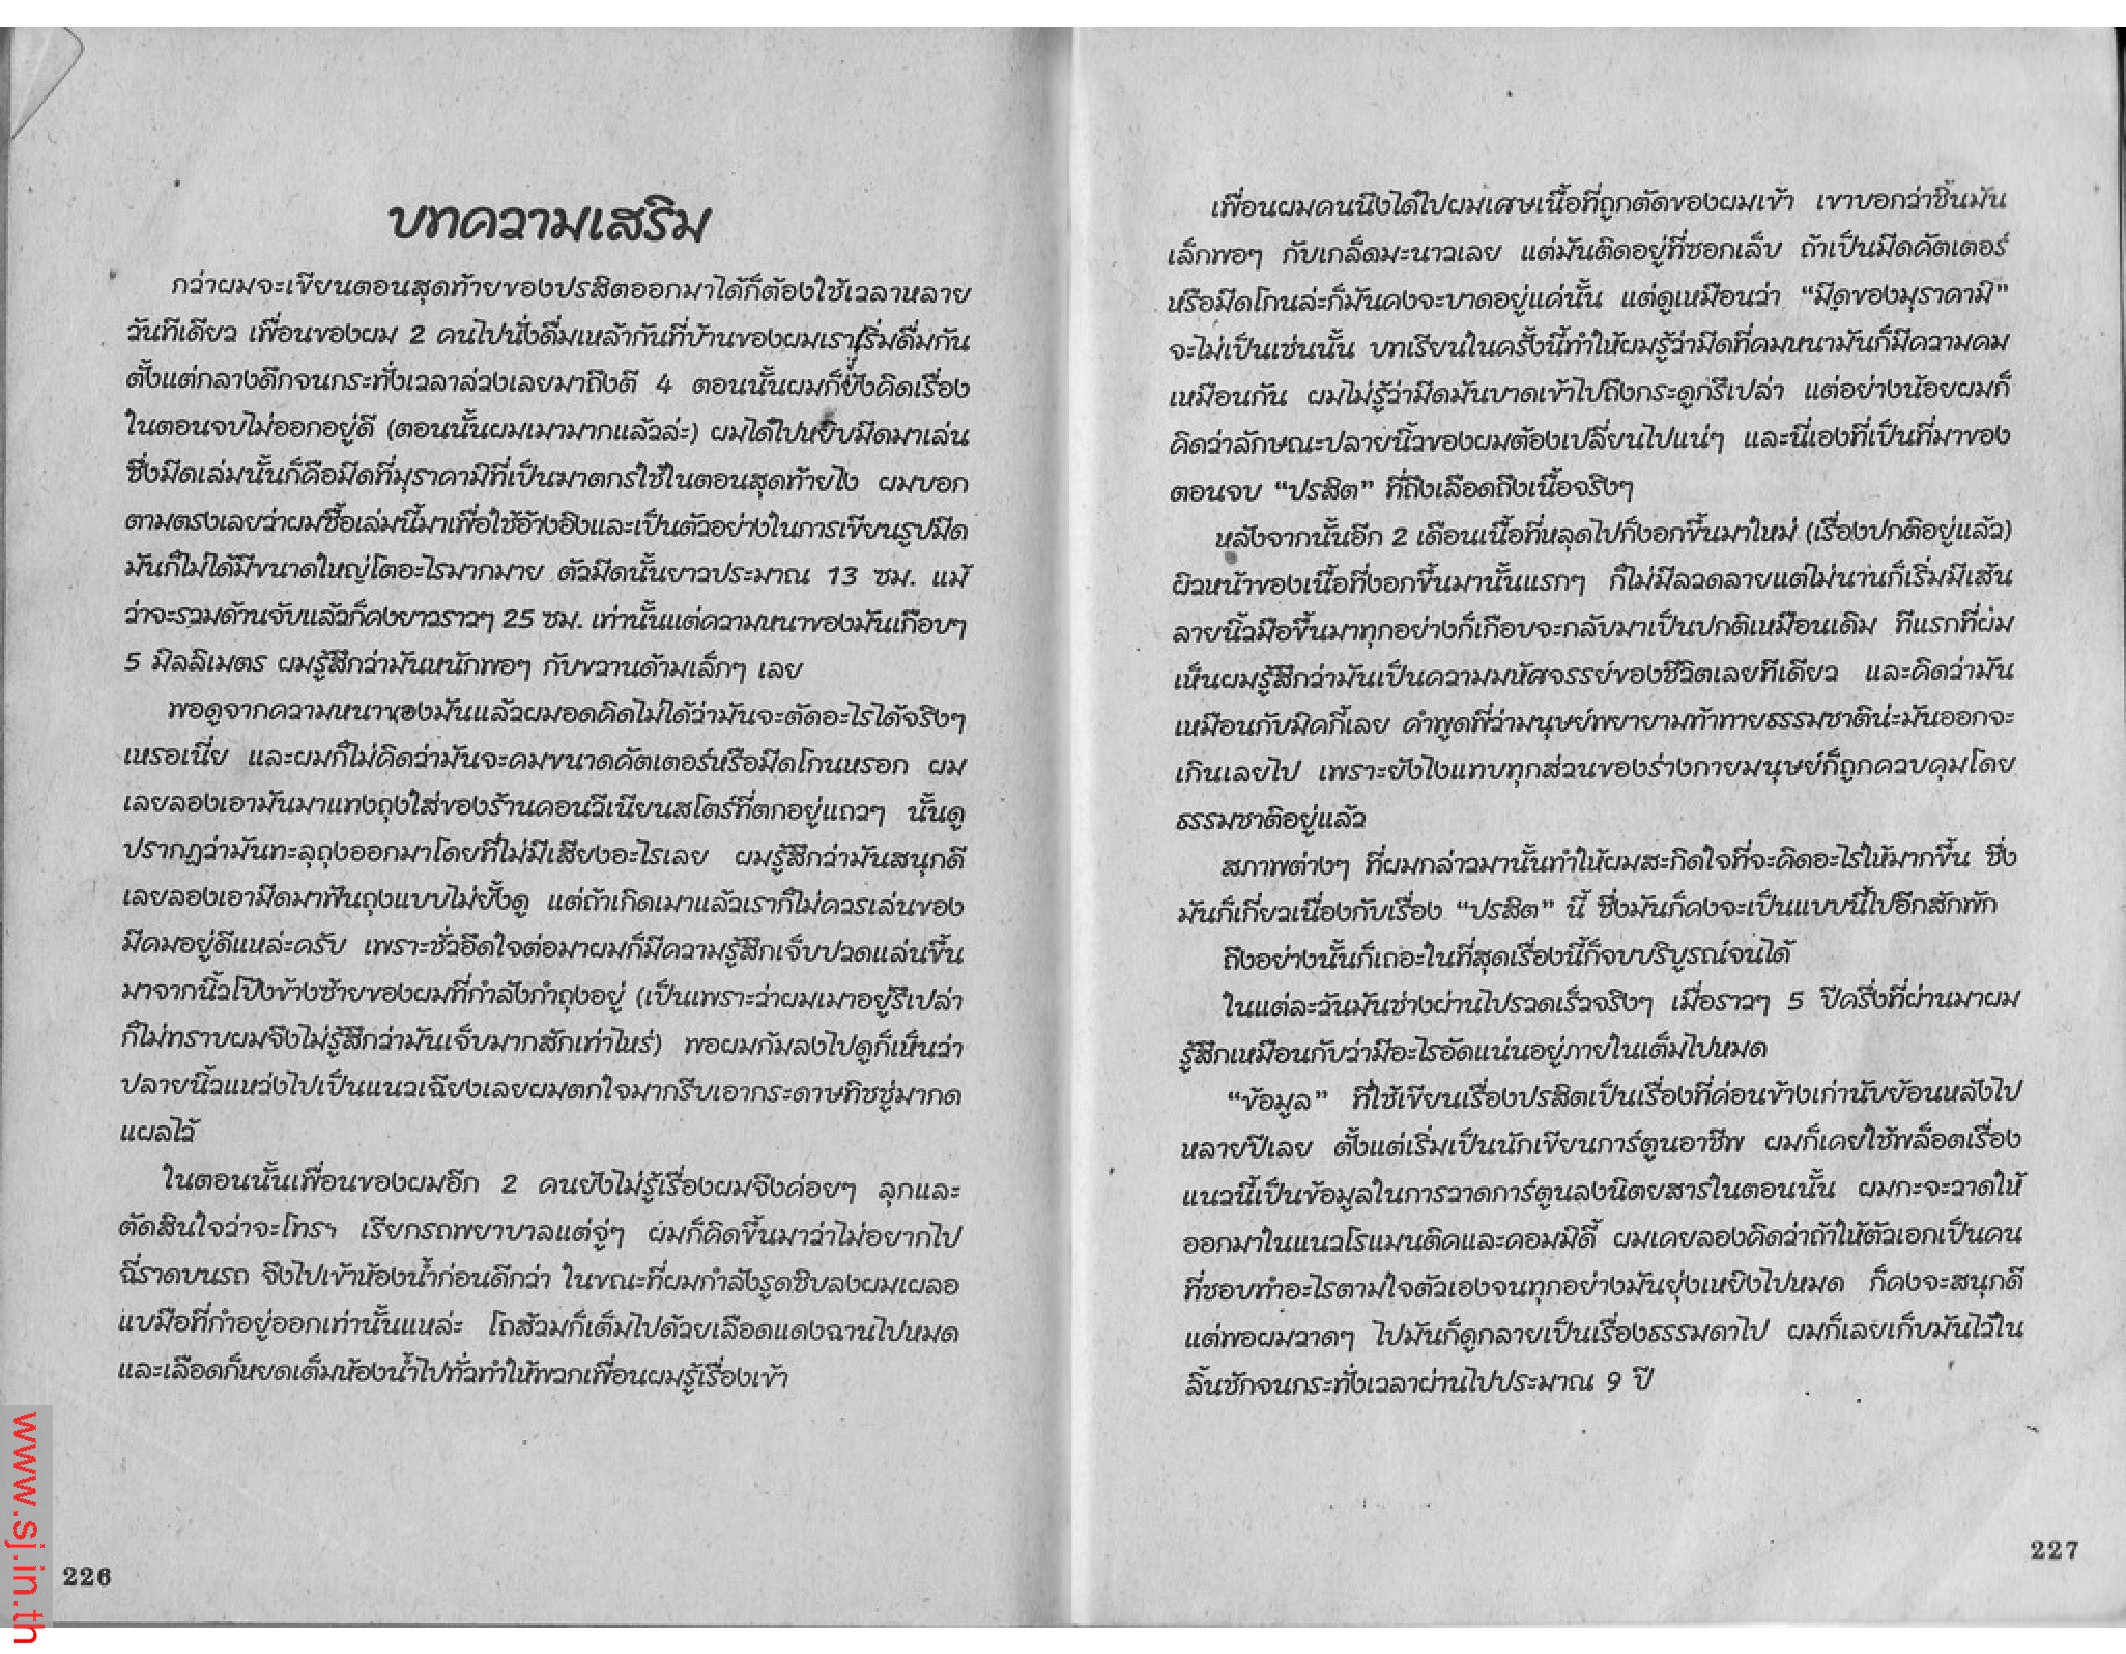 บทความเสริม
กว่าผมจะเขียนตอนสุดท้ายของปรสิตออกมาได้ก็ต้องใช้เวลาหลาย
วันทีเดียว เพื่อนของผม 2 คนไปนั่งดื่มเหล้ากันที่บ้านของผมเราเริ่มดื่มกัน
ตั้งแต่กลางดึกจนกระทั่งเวลาล่วงเลยมาถึงตี 4 ตอนนั้นผมก็ยังคิดเรื่อง
ในตอนจบไม่ออกอยู่ดี (ตอนนั้นผมเมามากแล้วล่ะ) ผมได้ไปหยิบมีดมาเล่น
ซึ่งมีดเล่มนั้นก็คือมีดที่มุราคามิที่เป็นฆาตกรใช้ในตอนสุดท้ายไง ผมบอก
ตามตรงเลยว่าผมซื้อเล่มนี้มาเพื่อใช้อ้างอิงและเป็นตัวอย่างในการเขียนรูปมีด
มันก็ไม่ได้มีขนาดใหญ่โตอะไรมากมาย ตัวมีดนั้นยาวประมาณ 13 ซม. แม้
ว่าจะรวมด้านจับแล้วก็คงยาวราวๆ 25 ซม. เท่านั้นแต่ความหนาของมันเกือบๆ
5 มิลลิเมตร ผมรู้สึกว่ามันหนักพอๆ กับขวานด้ามเล็กๆ เลย
พอดูจากความหนาของมันแล้วผมอดคิดไม่ได้ว่ามันจะตัดอะไรได้จริงๆ
เหรอเนี่ย และผมก็ไม่คิดว่ามันจะคมขนาดคัตเตอร์หรือมีดโกนหรอก ผม
เลยลองเอามันมาแทงถุงใส่ของร้านคอนวีเนียนสโตร์ที่ตกอยู่แถวๆ นั้นดู
ปรากฏว่ามันทะลุถุงออกมาโดยที่ไม่มีเสียงอะไรเลย ผมรู้สึกว่ามันสนุกดี
เลยลองเอามีดมาฟันถุงแบบไม่ยั้งดู แต่ถ้าเกิดเมาแล้วเราก็ไม่ควรเล่นของ
มีคมอยู่ดีแหล่ะครับ เพราะชั่วอึดใจต่อมาผมก็มีความรู้สึกเจ็บปวดแล่นขึ้น
มาจากนิ้วโป้งข้างซ้ายของผมที่กำลังกำถุงอยู่ (เป็นเพราะว่าผมเมาอยู่รึเปล่า
ก็ไม่ทราบผมจึงไม่รู้สึกว่ามันเจ็บมากสักเท่าไหร่) พอผมก้มลงไปดูก็เห็นว่า
ปลายนิ้วแหว่งไปเป็นแนวเฉียงเลยผมตกใจมากรีบเอากระดาษทิชชู่มากด
แผลไว้
ในตอนนั้นเพื่อนของผมอีก 2 คนยังไม่รู้เรื่องผมจึงค่อยๆ ลุกและ
ตัดสินใจว่าจะโทรฯ เรียกรถพยาบาลแต่จู่ๆ ผมก็คิดขึ้นมาว่าไม่อยากไป
ฉี่ราดบนรถ จึงไปเข้าห้องน้ำก่อนดีกว่า ในขณะที่ผมกำลังรูดซิบลงผมเผลอ
แบมือที่กำอยู่ออกเท่านั้นแหล่ะ โถส้วมก็เต็มไปด้วยเลือดแดงฉานไปหมด
และเลือดก็หยดเต็มห้องน้ำไปทั่วทำให้พวกเพื่อนผมรู้เรื่องเข้า
226
เพื่อนผมคนนึงได้ไปผมเศษเนื้อที่ถูกตัดของผมเข้า เขาบอกว่าชิ้นมัน
เล็กพอๆ กับเกล็ดมะนาวเลย แต่มันติดอยู่ที่ซอกเล็บ ถ้าเป็นมีดคัตเตอร์
หรือมีดโกนล่ะก็มันคงจะบาดอยู่แค่นั้น แต่ดูเหมือนว่า “มีดของมุราคามิ”
จะไม่เป็นเช่นนั้น บทเรียนในครั้งนี้ทำให้ผมรู้ว่ามีดที่คมหนามันก็มีความคม
เหมือนกัน ผมไม่รู้ว่ามีดมันบาดเข้าไปถึงกระดูกรึเปล่า แต่อย่างน้อยผมก็
คิดว่าลักษณะปลายนิ้วของผมต้องเปลี่ยนไปแน่ๆ และนี่เองที่เป็นที่มาของ
ตอนจบ “ปรสิต” ที่ถึงเลือดถึงเนื้อจริงๆ
หลังจากนั้นอีก 2 เดือนเนื้อที่หลุดไปก็งอกขึ้นมาใหม่ (เรื่องปกติอยู่แล้ว)
ผิวหน้าของเนื้อที่งอกขึ้นมานั้นแรกๆ ก็ไม่มีลวดลายแต่ไม่นานก็เริ่มมีเส้น
ลายนิ้วมือขึ้นมาทุกอย่างก็เกือบจะกลับมาเป็นปกติเหมือนเดิม ทีแรกที่ผม
เห็นผมรู้สึกว่ามันเป็นความมหัศจรรย์ของชีวิตเลยทีเดียว และคิดว่ามัน
เหมือนกับมิคกี้เลย คำพูดที่ว่ามนุษย์พยายามท้าทายธรรมชาติน่ะมันออกจะ
เกินเลยไป เพราะยังไงแทบทุกส่วนของร่างกายมนุษย์ก็ถูกควบคุมโดย
ธรรมชาติอยู่แล้ว
สภาพต่างๆ ที่ผมกล่าวมานั้นทำให้ผมสะกิดใจที่จะคิดอะไรให้มากขึ้น ซึ่ง
มันก็เกี่ยวเนื่องกับเรื่อง “ปรสิต” นี้ ซึ่งมันก็คงจะเป็นแบบนี้ไปอีกสักพัก
ถึงอย่างนั้นก็เถอะในที่สุดเรื่องนี้ก็จบบริบูรณ์จนได้
ในแต่ละวันมันช่างผ่านไปรวดเร็วจริงๆ เมื่อราวๆ 5 ปีครึ่งที่ผ่านมาผม
รู้สึกเหมือนกับว่ามีอะไรอัดแน่นอยู่ภายในเต็มไปหมด
“ข้อมูล” ที่ใช้เขียนเรื่องปรสิตเป็นเรื่องที่ค่อนข้างเก่านับย้อนหลังไป
หลายปีเลย ตั้งแต่เริ่มเป็นนักเขียนการ์ตูนอาชีพ ผมก็เคยใช้พล็อตเรื่อง
แนวนี้เป็นข้อมูลในการวาดการ์ตูนลงนิตยสารในตอนนั้น ผมกะจะวาดให้
ออกมาในแนวโรแมนติคและคอมมิดี้ ผมเคยลองคิดว่าถ้าให้ตัวเอกเป็นคน
ที่ชอบทำอะไรตามใจตัวเองจนทุกอย่างมันยุ่งเหยิงไปหมด ก็คงจะสนุกดี
แต่พอผมวาดๆ ไปมันก็ดูกลายเป็นเรื่องธรรมดาไป ผมก็เลยเก็บมันไว้ใน
ลิ้นชักจนกระทั่งเวลาผ่านไปประมาณ 9 ปี
227
www.sj.in.th